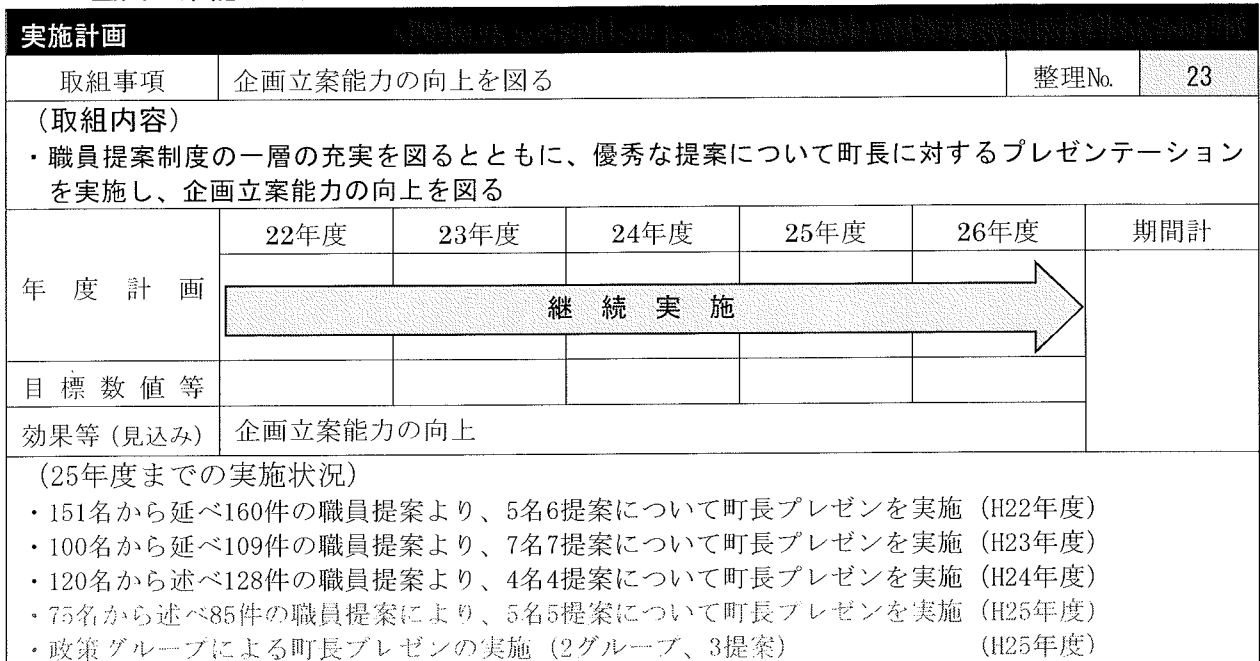 実施計画
取組事項 企画立案能力の向上を図る 整理№ 23
（取組内容）
・職員提案制度の一層の充実を図るとともに、優秀な提案について町長に対するプレゼンテーション
を実施し、企画立案能力の向上を図る
22年度 23年度 24年度 25年度 26年度 期間計
年度計画
継続実施
目標数値等
効果等（見込み） 企画立案能力の向上
（25年度までの実施状況）
・151名から延べ160件の職員提案より、5名6提案について町長プレゼンを実施（H22年度）
・100名から延べ109件の職員提案より、7名7提案について町長プレゼンを実施（H23年度）
・120名から述べ128件の職員提案より、4名4提案について町長プレゼンを実施（H24年度）
・75名から述べ85件の職員提案により、5名5提案について町長プレゼンを実施（H25年度）
・政策グループによる町長プレゼンの実施（2グループ、3提案）（H25年度）